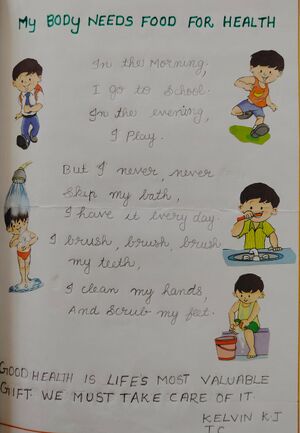 MY BODY NEEDS FOOD FOR HEALTH
In the Morning,
I go to School.
In the evening,
I Play.
But I never, never
Skip my bath,
I have it every day.
I brush, brush, brush
my teeth,
I clean my hands,
And Scrub my feet.
GOOD HEALTH IS LIFE'S MOST VALUABLE
GIFT. WE MUST TAKE CARE OF IT
KELVIN K.J
I C